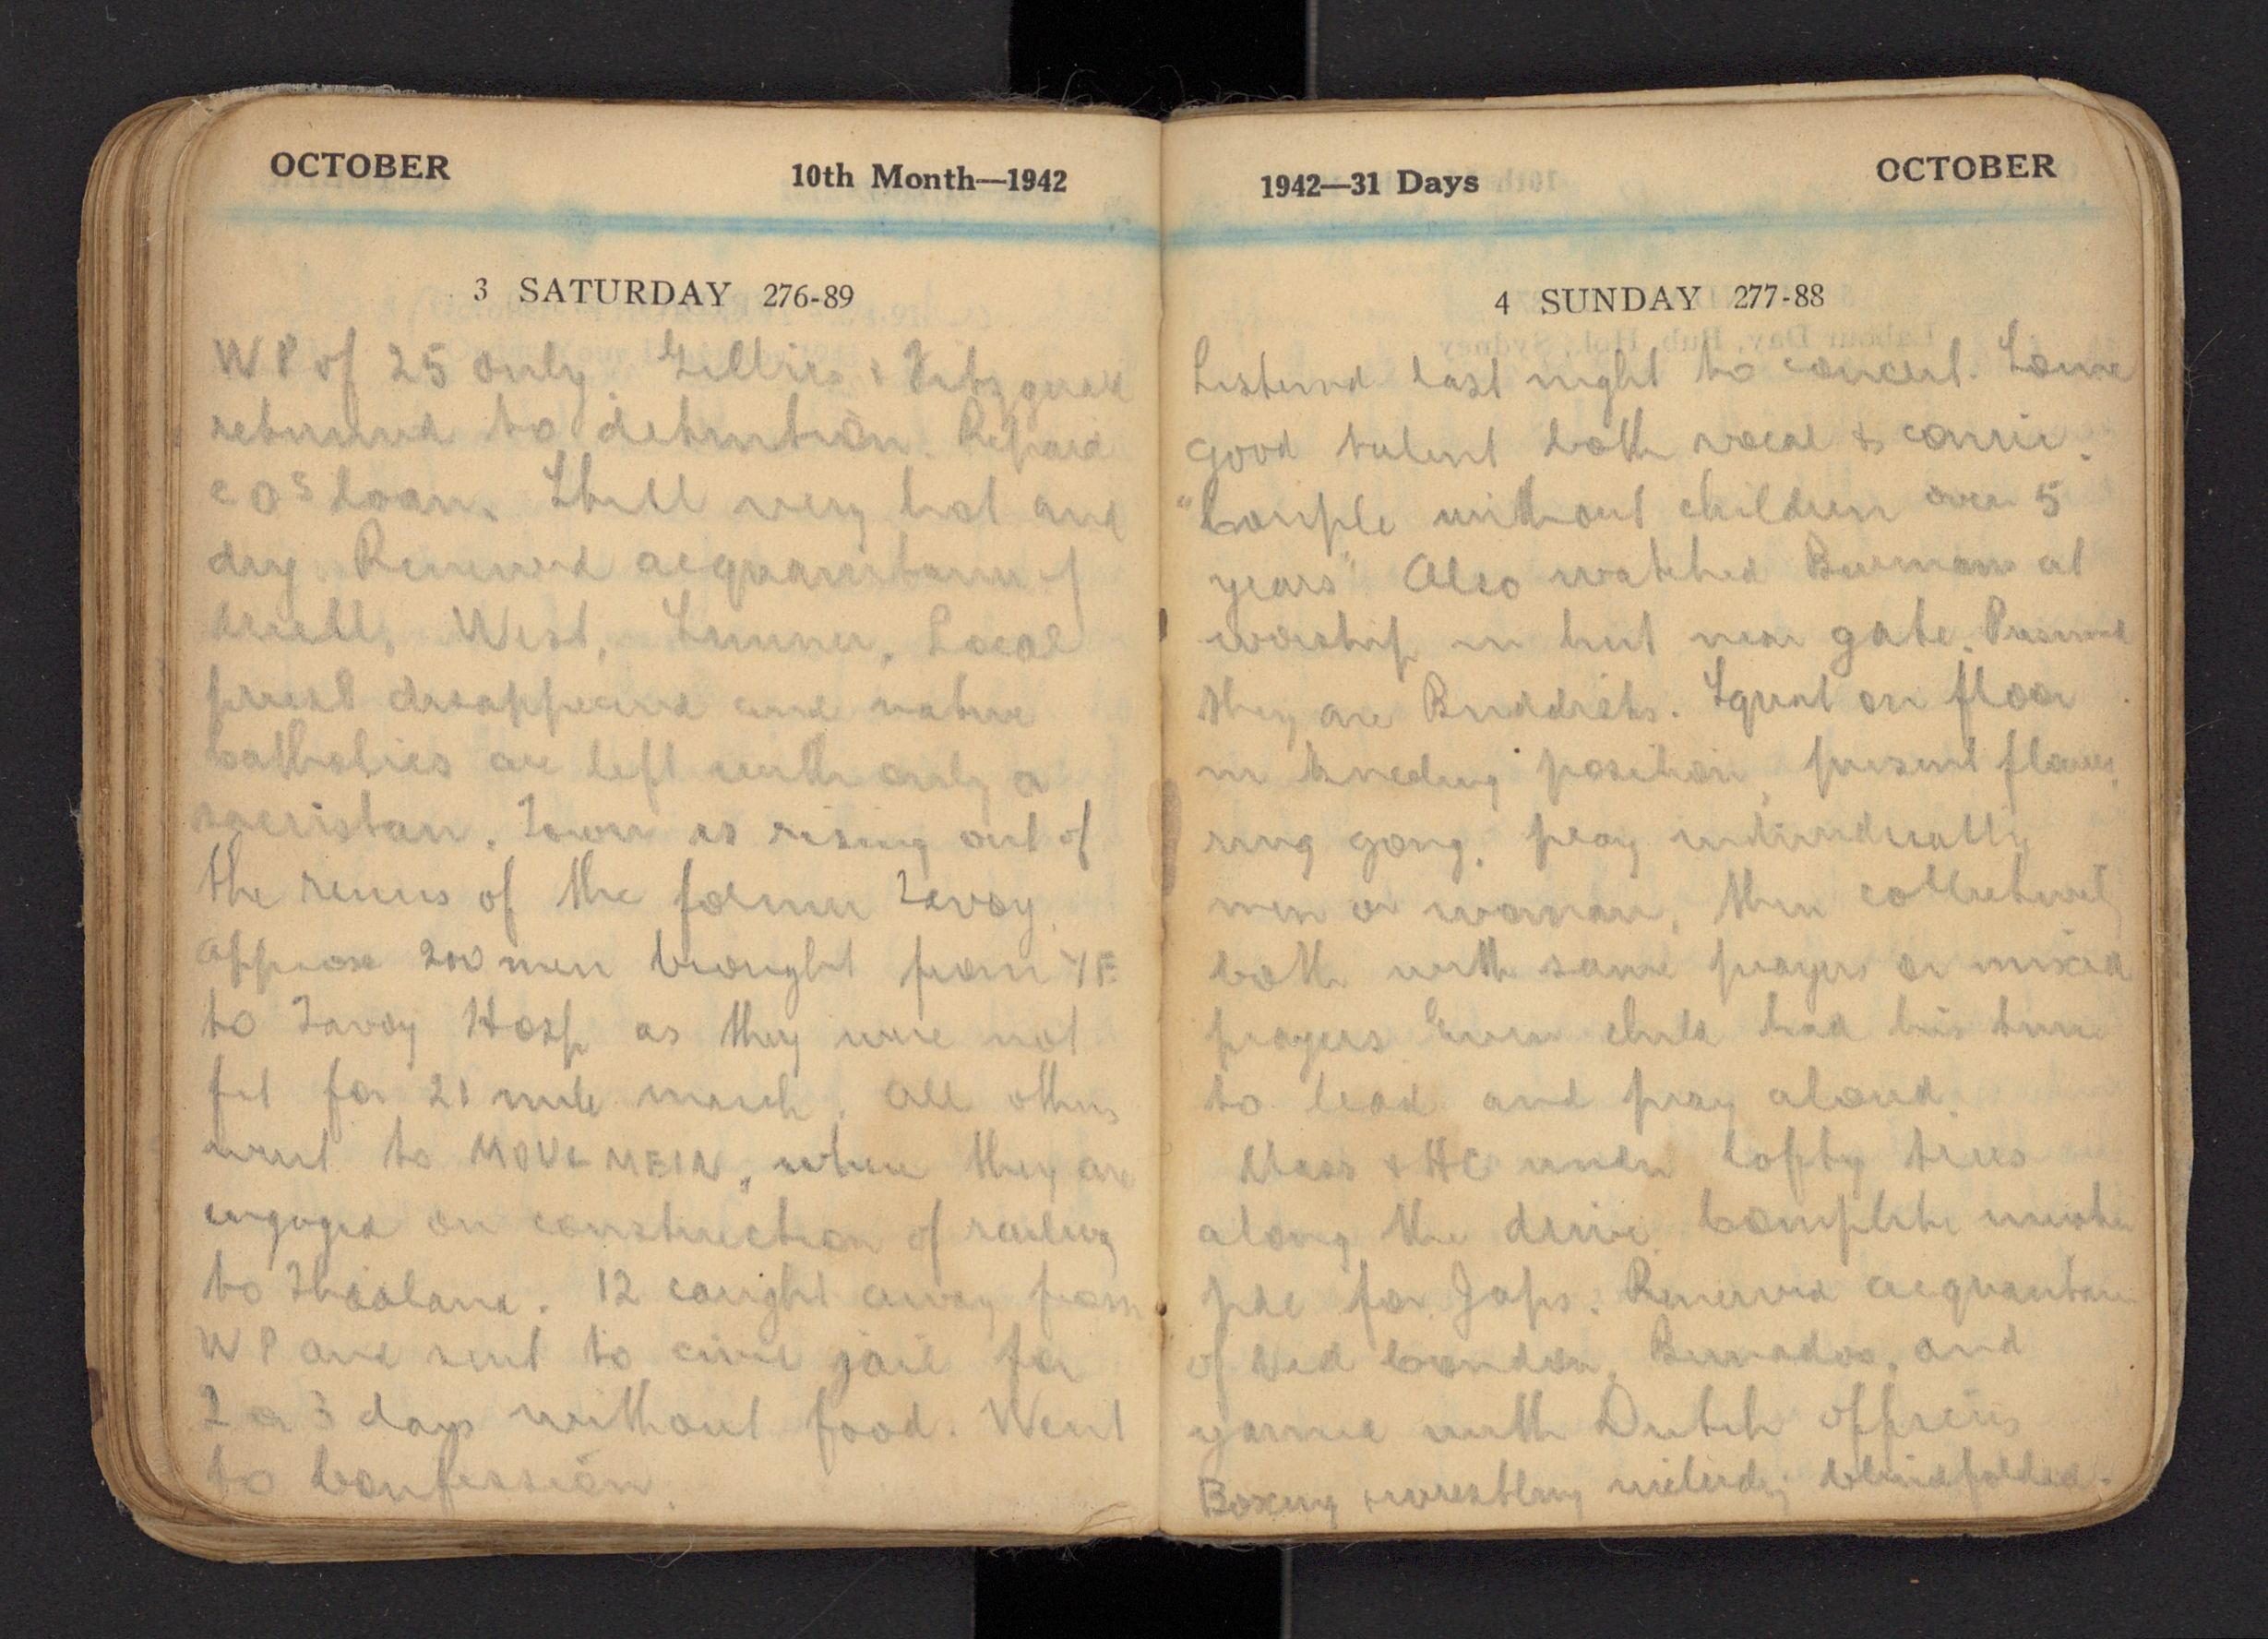 OCTOBER 10th Month—1942
3 SATURDAY 276-89
W P of 25 only. Gillies & Fitzgerald
returned to detention. Repaid
C Os loan. Still very hot and
dry. Renewed acquaintance of
West, Local
priest disappeared and native
Catholics are left with only a
sacristan. Town is rising out of
the ruins of the former Tavoy.
Approx 200 men brought from YE
to Tavoy Hosp as they were not
fit for 21 mile march. All others
went to MOULMEIN, where they are
engaged on construction of railway
to Thailand. 12 caught away from
W P and sent to civil jail for
2 or 3 days without food. Went
to Confession.
1942—31 Days OCTOBER
4 SUNDAY 277-88
Listened last night to concert. Some
good talent both vocal & comic.
"Couple without children over 5
years" Also watched Burmans at
worship in hut near gate. Presumed
they are Buddists. Squat on floor
in kneeling position, present flowers,
ring gong, pray individually
men or woman, then collectively
both with same prayers or mixed
prayers. Even child had his turn
to lead and pray aloud.
Mass & HC under lofty trees
along the drive. Complete
for Japs. Renewed acquaintance
of and
yarned with Dutch officers
Boxing & wrestling including blindfolded.